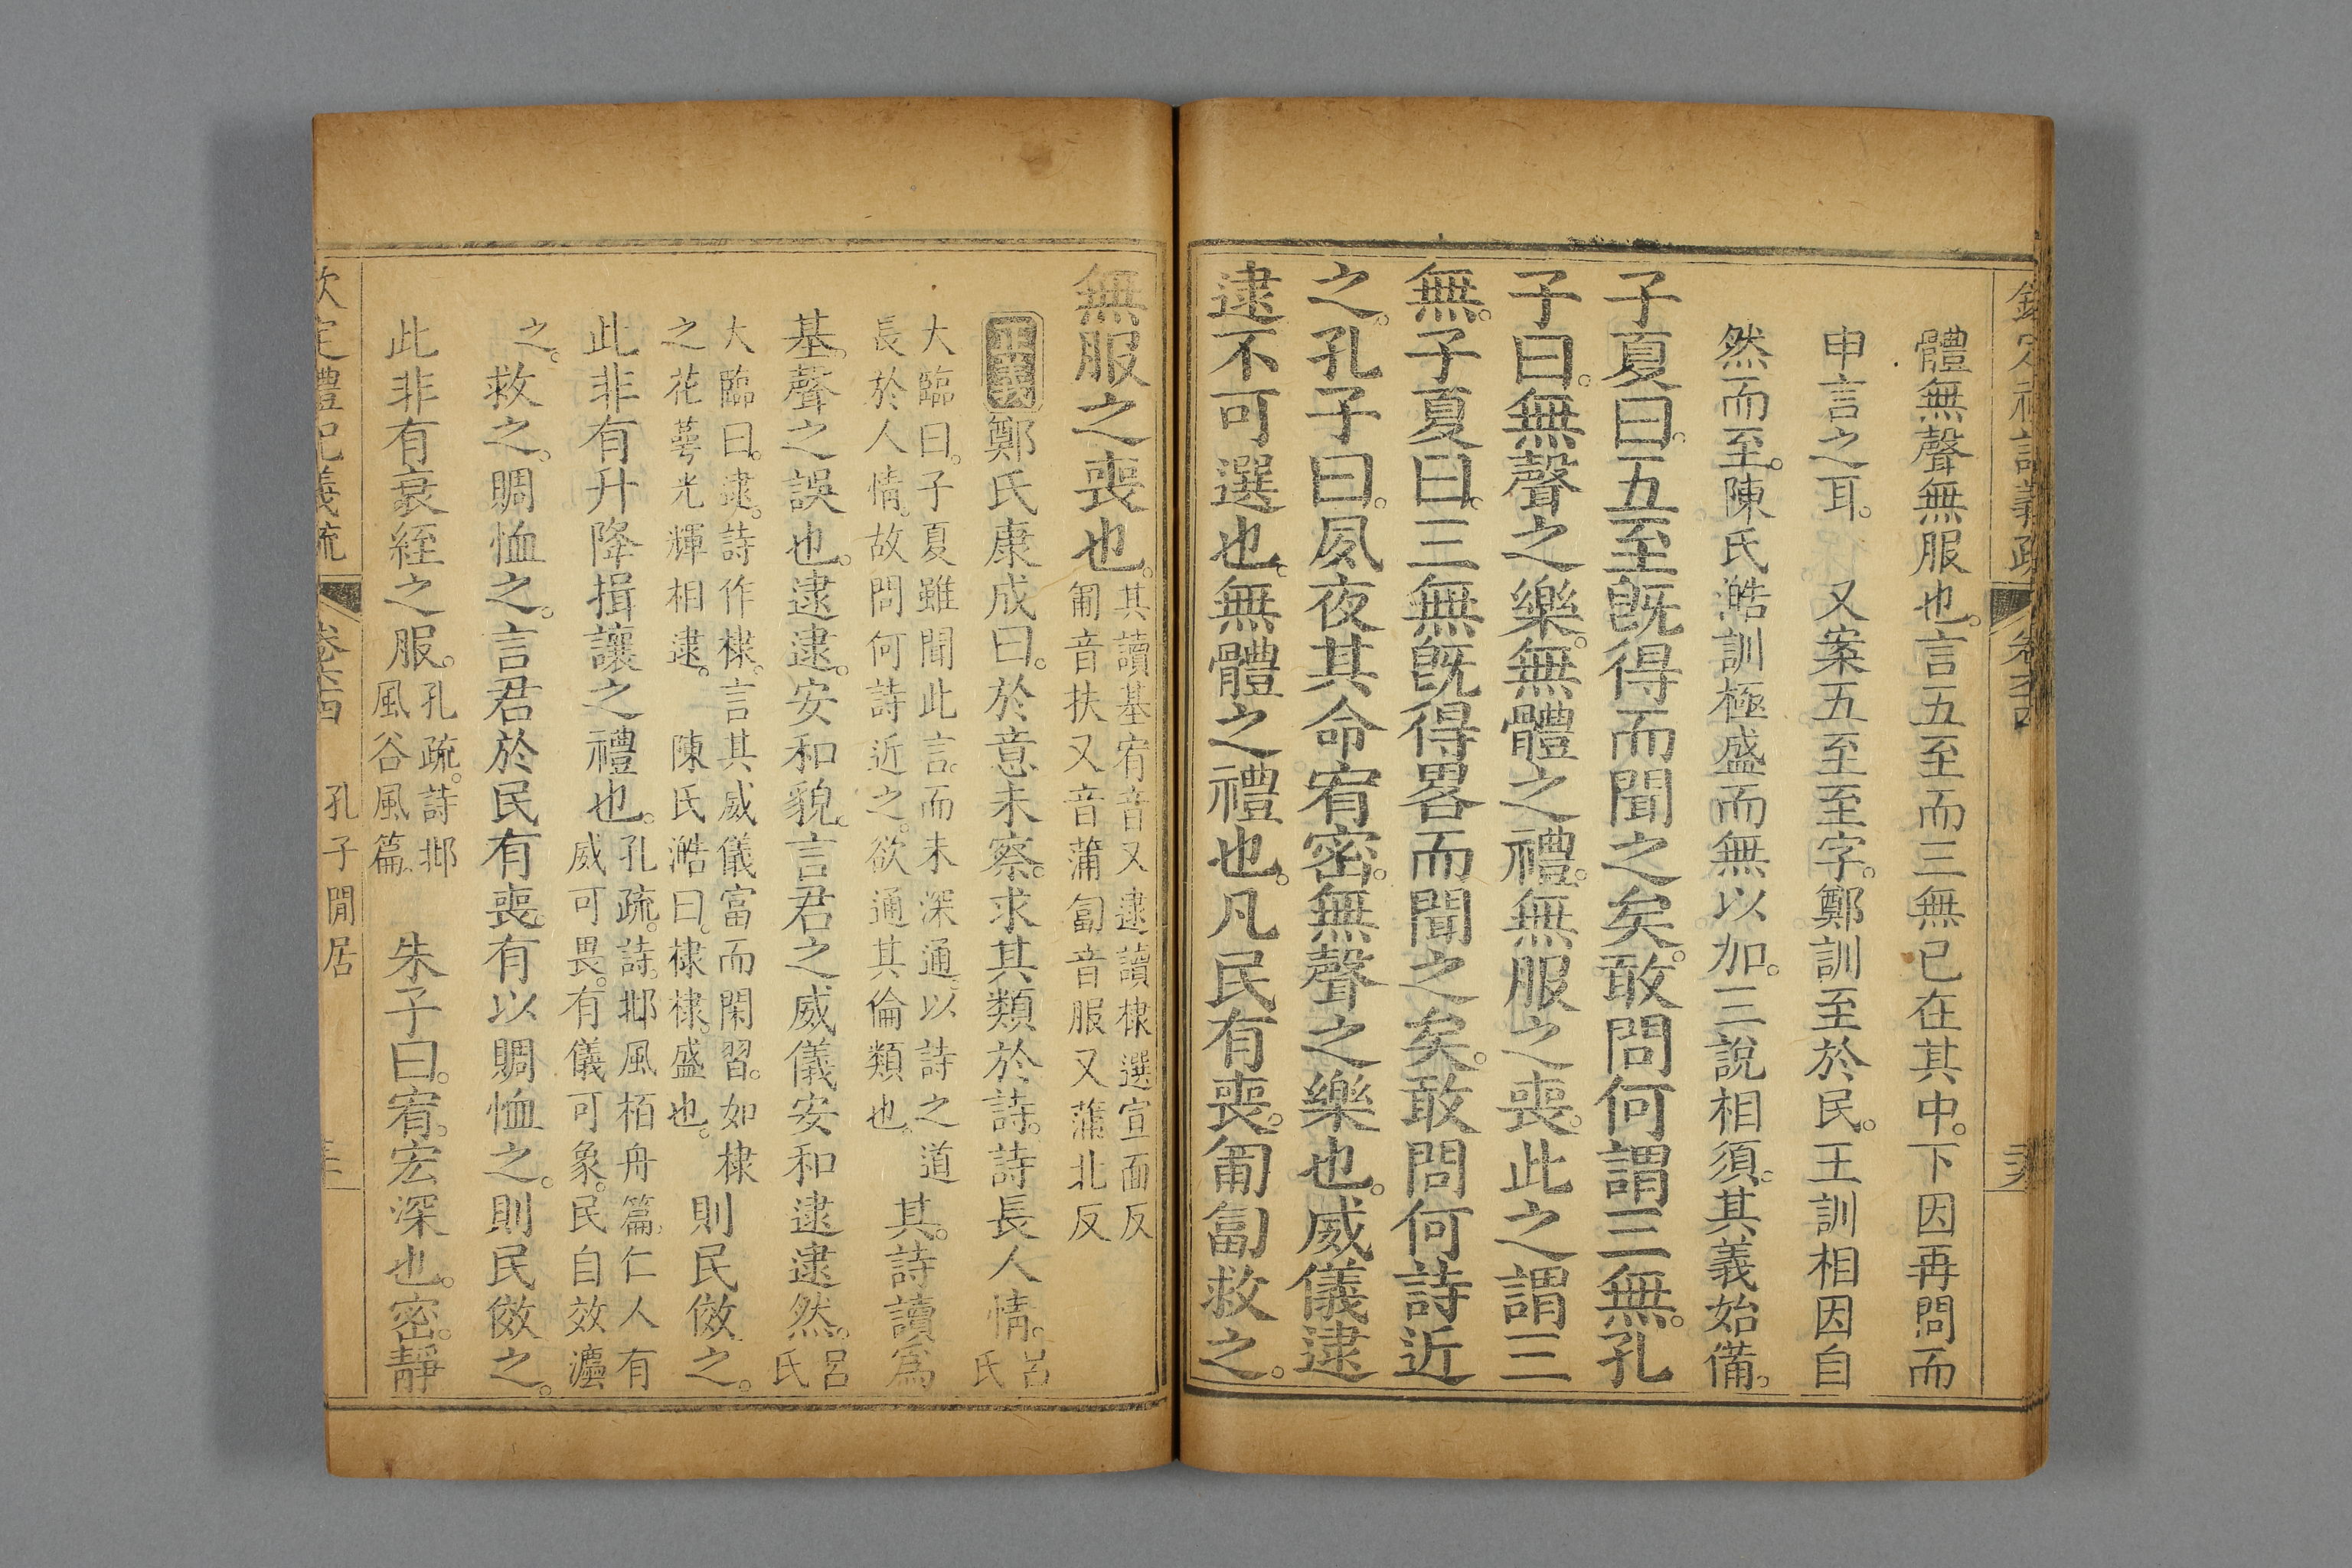 體無聲無服也。言五至而三無已在其中。下因再問而
申言之耳。 又案五至至字。鄭訓至於民。王訓相因自
然而至。陳氏澔訓極盛而無以加。三說相須。其義始備。
子夏曰。五至既得而聞之矣。敢問何謂三無。孔
子曰。無聲之樂。無體之禮。無服之喪。此之謂三
無。子夏曰。三無既得畧而聞之矣。敢問何詩近
之。孔子曰。夙夜其命宥密。無聲之樂也。威儀逮
逮不可選也。無體之禮也。凡民有喪。匍匐救之。
無服之喪也。
其讀基宥音又逮讀棣選宣面反
匍音扶又音蒲匐音服又蒲北反
正義鄭氏康成曰。於意未察。求其類於詩。詩長人情。
呂氏
大臨曰。子夏雖聞此言。而未深通。以詩之道
長於人情。故問何詩近之。欲通其倫類也。
其。詩讀爲
基。聲之誤也。逮逮。安和貌。言君之威儀安和逮逮然。
呂氏
大臨曰。逮。詩作棣。言其威儀富而閑習。如棣
之花萼光輝相逮。 陳氏澔曰。棣棣。盛也。
則民傚之。
此非有升降揖讓之禮也。
孔疏。詩。邶風栢舟篇。仁人有
威可畏。有儀可象。民自效灋
之。
救之。賙恤之。言君於民有喪。有以賙恤之。則民傚之。
此非有衰絰之服。
孔疏。詩邶
風谷風篇。
朱子曰。宥。宏深也。密。靜
欽定禮記義疏 卷六十四 孔子閒居